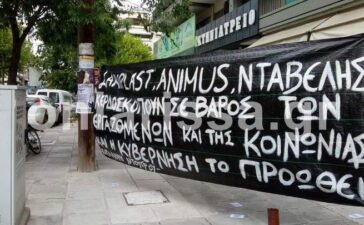 ΚΤΗΝΙΑΤΡΕΙΟ
ANIMUS, ΝΤΑΒΕΛΗΣ
ΚΕΡΔΟΣΚΟΠΟΥΝ ΣΕ ΒΑΡΟΣ ΤΩΝ
ΕΡΓΑΖΟΜΕΝΩΝ ΚΑΙ ΤΗΣ ΚΟΙΝΩΝΙΑΣ
Η ΚΥΒΕΡΝΗΣΗ ΤΟ ΠΡΟΩΘΕΙ
onlarissa.gr